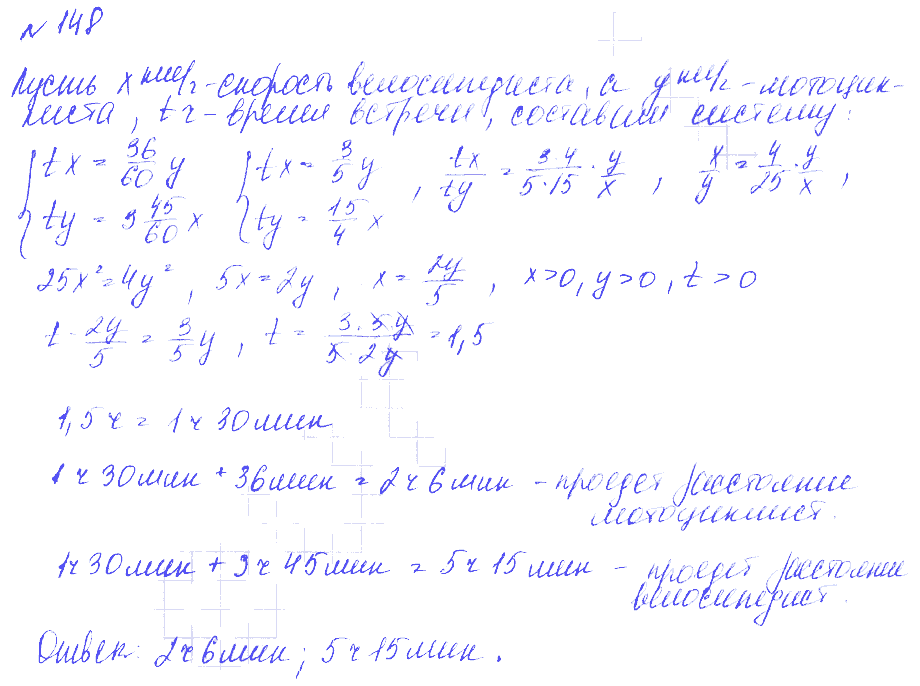 № 148
Пусть x км/ч - скорость велосипедиста, а y км/ч - мотоцик-
листа, t ч - время встречи, составим систему:
{ tx = 36/60 y { tx = 3/5 y , tx/ty = 3·4/5·15 · y/x , x/y = 4/25 · y/x ,
{ ty = 3 45/60 x { ty = 15/4 x
25x² = 4y² , 5x = 2y , x = 2y/5 , x>0, y>0, t>0
t · 2y/5 = 3/5 y , t = 3·5·y/5·2y = 1,5
1,5 ч = 1 ч 30 мин
1 ч 30 мин + 36 мин = 2 ч 6 мин - проедет расстояние
мотоциклист.
1ч 30 мин + 3 ч 45 мин = 5 ч 15 мин - проедет расстояние
велосипедист.
Ответ: 2ч 6мин; 5 ч 15 мин.